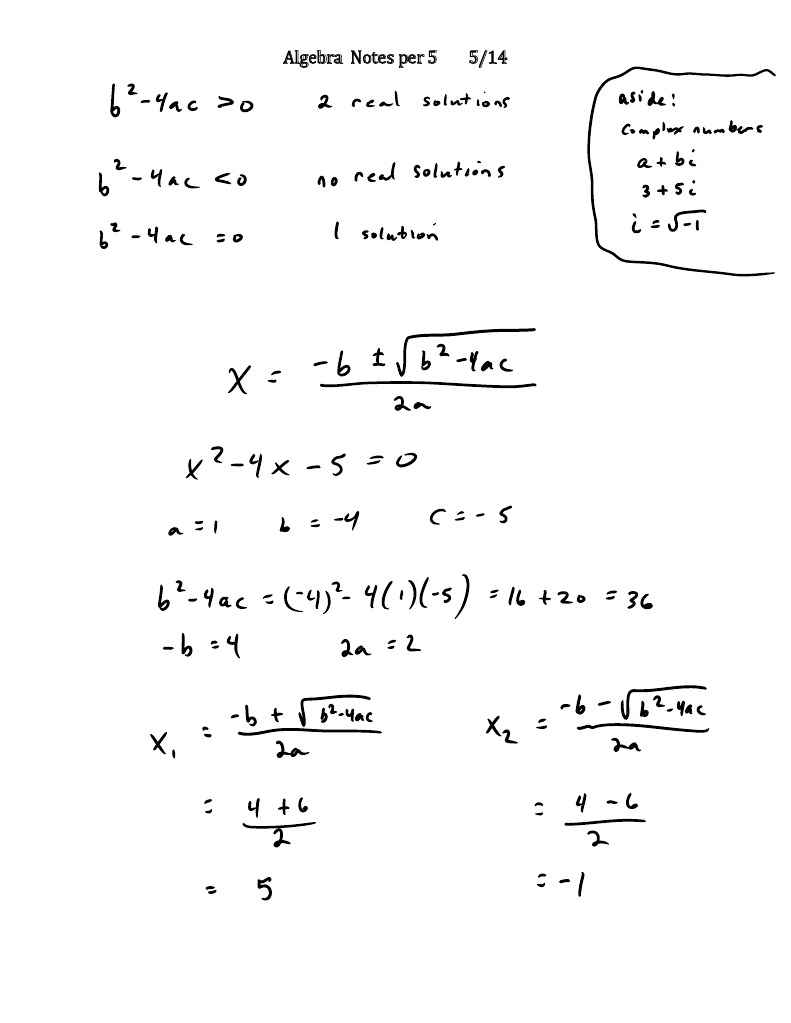 Algebra Notes per 5 5/14
b²-4ac >0 2 real solutions
b²-4ac <0 no real solutions
b²-4ac =0 1 solution
aside:
Complex numbers
a + bi
3 + 5i
i = √-1
x = (-b ± √(b²-4ac)) / 2a
x²-4x-5 = 0
a = 1 b = -4 c = -5
b²-4ac = (-4)²- 4(1)(-5) = 16 + 20 = 36
-b = 4 2a = 2
x₁ = (-b + √(b²-4ac)) / 2a
= (4 + 6) / 2
= 5
x₂ = (-b - √(b²-4ac)) / 2a
= (4 - 6) / 2
= -1